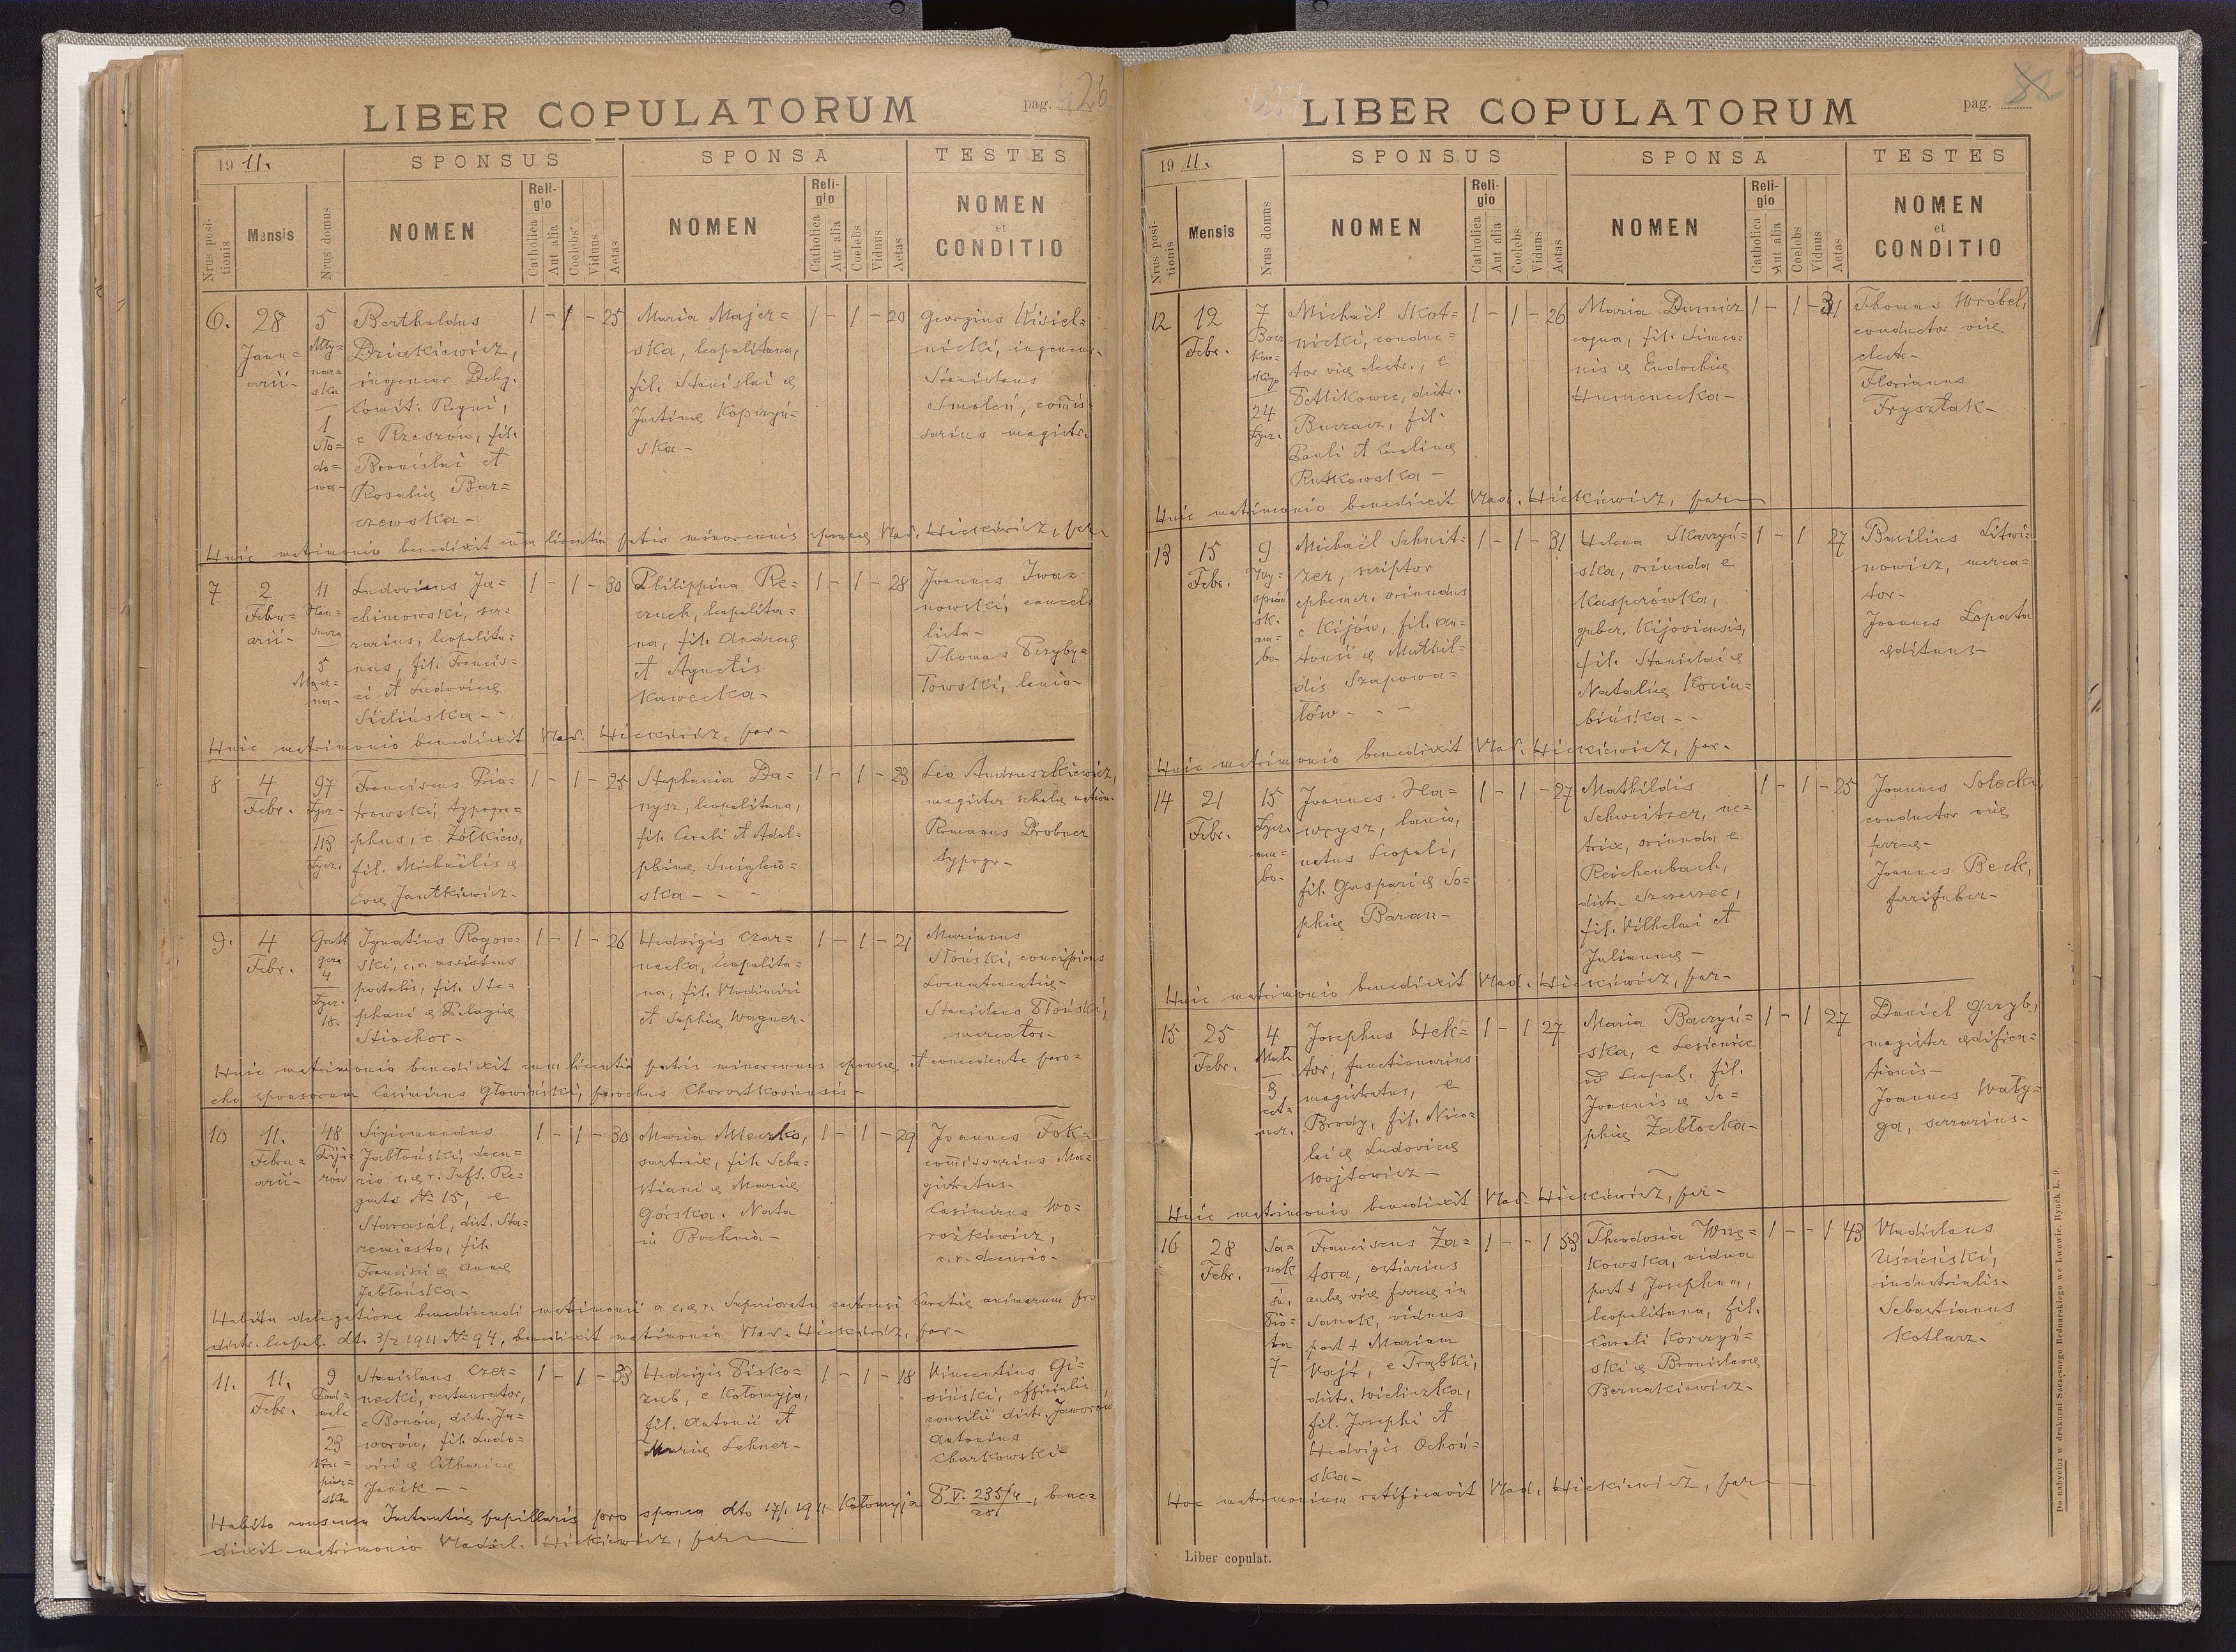 LIBER COPULATORUM
pag. 426
19 11.
SPONSUS
SPONSA
TESTES
Nrus posi-
tionis
Mensis
Nrus domus
NOMEN
Reli-
gio
Catholica
Aut alia
Coelebs
Viduus
Aetas
NOMEN
Reli-
gio
Catholica
Aut alia
Coelebs
Viduus
Aetas
NOMEN
et
CONDITIO
6.
28
Janu=
arii-
5
Mły=
nar=
ska
1
Sto=
do=
wa-
Bertholdus
Dziakiewicz,
ingeneur Deleg.
Comit. Regni,
e Rzeszów, fil.
Bronislai et
Rosaliæ Bar=
czewska-
1 - 1 - 25
Maria Majer=
ska, leopolitana,
fil. Stanislai &
Justinæ Kopczyń=
ska-
1 - 1 - 20
Georgius Kisiel=
nicki, ingeneur-
Stanislaus
Smoleń, comis=
sarius magistr.
Huic matrimonio benedixit cum licentia patris minorennis sponsæ Vlad. Hickiewicz, par-
7
2
Febru=
arii-
11
Hau=
snera
5
na-
Ludovicus Ja=
chimowski, ser=
rarius, leopolita=
nus, fil. Francis=
ci et Ludovicæ
Sielińska--
1 - 1 - 30
Philippina Re=
czuch, leopolita=
na, fil. Andreæ
et Agnetis
Kawecka-
1 - 1 - 28
Joannes Iwa=
nowski, cancel=
lista-
Thomas Przyby=
łowski, lanio-
Huic matrimonio benedixit Vlad. Hickiewicz, par-
8
4
Febr.
97
Łycz-
113
Łycz.
Franciscus Pia=
trowski, typogra=
phus, e Żółkiew,
fil. Michaëlis &
Evæ Jantkiewicz-
1 - 1 - 25
Stephania Da=
nysz, leopolitana,
fil. Caroli et Adol=
phinæ Śmigłow=
ska - - -
1 - 1 - 23
Leo Andruszkiewicz,
magister scholæ
Romanus Drobner
typogr-
9.
4
Febr.
Grott
gera
4
Łycz-
18.
Ignatius Rogow=
ski, c.r. assistens
postalis, fil. Ste=
phani & Pelagiæ
Stiochor-
1 - 1 - 26
Hedvigis Czar=
necka, leopolita=
na, fil. Vladimiri
et Sophiæ Wagner-
1 - 1 - 21
Marianus
Słoński, concipiens
Locumtenentiæ-
Stanislaus Płoński,
mercator-
Huic matrimonio benedixit cum licentia patris minorennis sponsæ et concedente paro=
cho sponsorum Casimirus Głowiński, parochus Chorostkoviensis-
10
11.
Febru=
arii-
48
rów
Sigismundus
Jabłoński, decu=
rio c. & r. Inft. Re=
gmts № 15, e
Starasól, dist. Sta=
remiasto, fil.
Francisci & Annæ
Jabłońska-
1 - 1 - 30
Maria Meczko,
sartrix, fil. Seba=
stiani & Mariæ
Górska. Nata
in Bochnia-
1 - 1 - 29
Joannes Fok-
comissarius Ma=
gistratus-
Casimirus Wo=
roźkiewicz,
c. r. decurio-
Habita delegatione benedicendi matrimonii a c. & r. Superioratu castrensi Curatiæ animarum pro
distr. leopol. dt. 3/2 1911 № 94, benedixit matrimonio Vlad. Hickiewicz, par-
11.
11.
Febr.
9
Pod=
wale
23
pier=
ska
Stanislaus Czer=
necki, restaurator,
e Bonów, distr. Ja=
worów, fil. Ludo=
vici & Catharinæ
Janik - -
1 - 1 - 33
Hedvigis Pisko=
zub, e Kołomyja,
fil. Antonii et
Mariæ Lehner-
1 - 1 - 18
Vincentius Gi=
ziński, officialis
consilii distr. Jaworów
Antonius
Charkowski-
Habito consensu Instantiæ pupillaris pro sponsa dto 17/1 1911 Kołomyja P V. 235/4, bene=
28
dixit matrimonio Vladisl. Hickiewicz, par-
LIBER COPULATORUM
pag. 82
19 11.
SPONSUS
SPONSA
TESTES
Nrus posi-
tionis
Mensis
Nrus domus
NOMEN
Reli-
gio
Catholica
Aut alia
Coelebs
Viduus
Aetas
NOMEN
Reli-
gio
Catholica
Aut alia
Coelebs
Viduus
Aetas
NOMEN
et
CONDITIO
12
12
Febr.
7
Bocz
kow=
skiego
24
Łycz.
Michaël Skot=
nicki, conduc=
tor viæ electr., e
Petlikowce, distr.
Buczacz, fil.
Pauli et Carolinæ
Rutkowska-
1 - 1 - 26
Maria Dumicz
coqua, fil. Simeo=
nis & Eudochiæ
Humeniecka-
1 - 1 - 31
Thomas Wróbel,
conductor viæ
electr-
Florianus
Frysztak-
Huic matrimonio benedixit Vlad. Hickiewicz, par-
13
15
Febr.
9
Wy=
spiań
sk.
am=
bo-
Michaël Schnit=
zer, scriptor
ephemer. oriundus
e Kijów, fil. An=
tonii & Mathil=
dis Szapowa=
łów - - -
1 - 1 - 31
Helena Skarzyń=
ska, oriunda e
Kasperówka,
guber. Kijoviensis,
fil. Stanislai &
Nataliæ Kociu=
bińska - -
1 - 1 27
Basilius Litwi=
nowicz, merca=
tor-
Joannes Łopata
ædituus-
Huic matrimonio benedixit Vlad. Hickiewicz, par-
14
21
Febr.
15
Łycz.
am=
bo-
Joannes Ha=
wrysz, lanio,
natus Leopoli,
fil. Gaspari & So=
phiæ Baran-
1 - 1 - 27
Mathildis
Schweitzer, ne=
trix, oriunda e
Reichenbach,
distr. Szczerzec,
fil. Vilhelmi et
Juliannæ-
1 - 1 - 25
Joannes Solecki,
conductor viæ
ferreæ-
Joannes Beck,
ferrifaber-
Huic matrimonio benedixit Vlad. Hickiewicz, par-
15
25
Febr.
4
3
Josephus Hek=
tor, functionarius
magistratus, e
Brody, fil. Nico=
lai & Ludovicæ
Wojtowicz-
1 - 1 27
Maria Baczyń=
ska, e Lesienice
ad Leopol. fil.
Joannis & So=
phiæ Zabłocka-
1 - 1 27
Daniel Grzyb,
magister ædifica=
tionis-
Joannes Wały=
ga, serrarius-
Huic matrimonio benedixit Vlad. Hickiewicz, par-
16
28
Febr.
Sa=
nok
7-
Franciscus Za=
tora, ostiarius
aulæ viæ ferreæ in
Sanok, viduus
post + Mariam
Kajś, e Trąbki,
distr. Wieliczka,
fil. Josephi et
Hedvigis Ochoń=
ska-
1 - - 1 53
Theodosia Wnę=
kowska, vidua
post + Josephum,
leopolitana, fil.
Caroli Korczyń=
ski & Bronislavæ
Bernakiewicz-
1 - - 1 43
Vladislaus
Uścieński,
industrialis-
Sebastianus
Kotlarz-
Hoc matrimonium ratificavit Vlad. Hickiewicz, par-
Liber copulat.
Do nabycia: w drukarni Szczęsnego Bednarskiego we Lwowie, Rynek L. 9.